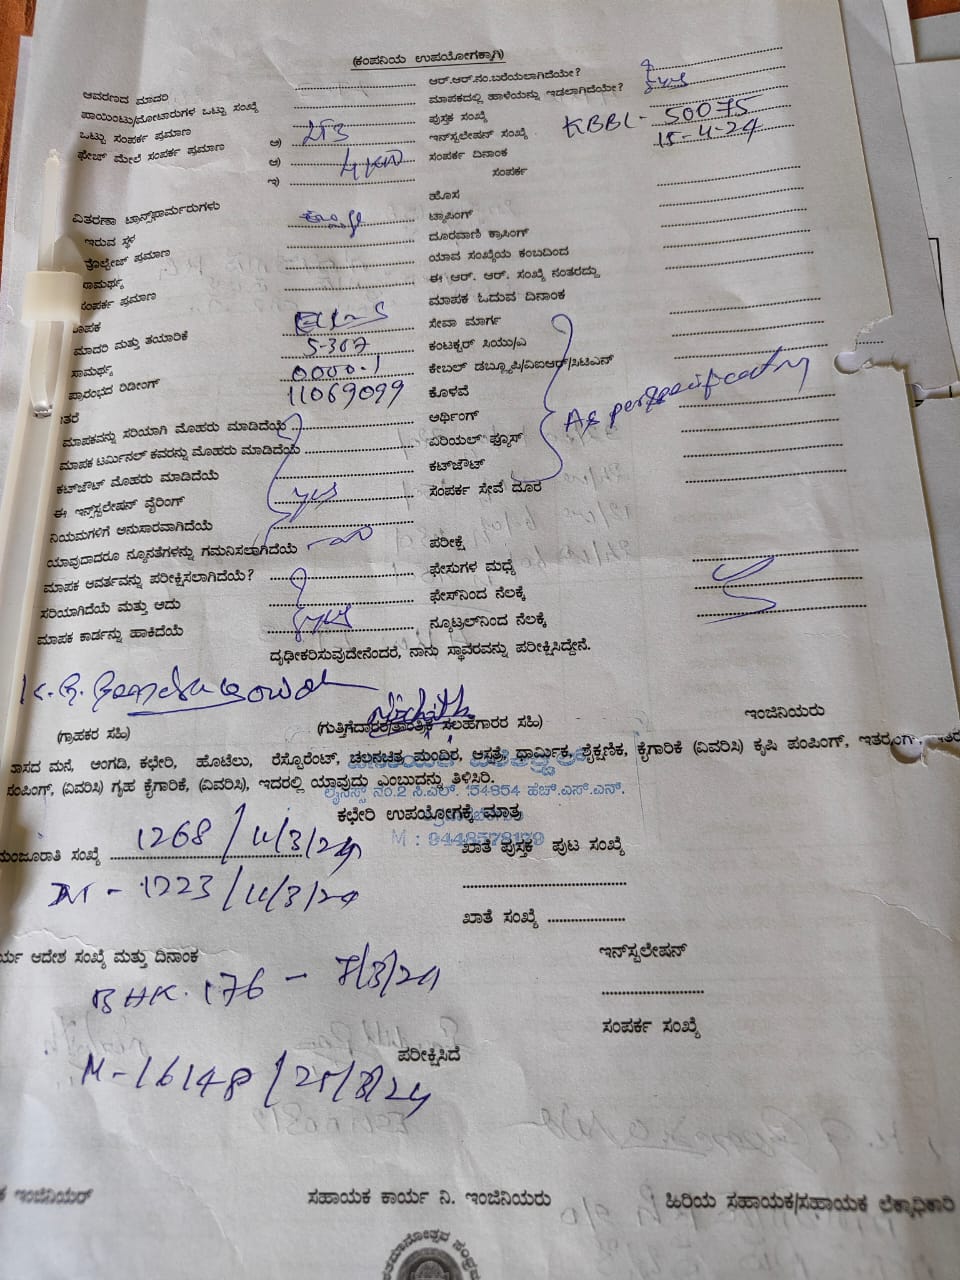 (ಕಂಪನಿಯ ಉಪಯೋಗಕ್ಕಾಗಿ)
ಆವರಣದ ಮಾದರಿ
ಆರ್.ಆರ್.ನಂ.ಬರೆಯಲಾಗಿದೆಯೇ?
ಪಾಯಿಂಟು/ಮೋಟಾರುಗಳ ಒಟ್ಟು ಸಂಖ್ಯೆ
ಮಾಪಕದಲ್ಲಿ ಹಾಳೆಯನ್ನು ಇಡಲಾಗಿದೆಯೇ? yes
ಒಟ್ಟು ಸಂಪರ್ಕ ಪ್ರಮಾಣ ಅ)
ಪುಸ್ತಕ ಸಂಖ್ಯೆ
ಫೇಜ್ ಮೇಲೆ ಸಂಪರ್ಕ ಪ್ರಮಾಣ ಆ) 4 KW
ಇನ್‌ಸ್ಟಲೇಷನ್ ಸಂಖ್ಯೆ KBBL- 50075
ಇ)
ಸಂಪರ್ಕ ದಿನಾಂಕ 15-4-24
ಸಂಪರ್ಕ
ವಿತರಣಾ ಟ್ರಾನ್ಸ್‌ಫಾರ್ಮರುಗಳು
ಹೊಸ
ಇರುವ ಸ್ಥಳ
ಟ್ಯಾಪಿಂಗ್
ವೋಲ್ಟೇಜ್ ಪ್ರಮಾಣ
ದೂರವಾಣಿ ಕ್ರಾಸಿಂಗ್
ಸಾಮರ್ಥ್ಯ
ಯಾವ ಸಂಖ್ಯೆಯ ಕಂಬದಿಂದ
ಸಂಪರ್ಕ ಪ್ರಮಾಣ
ಈ ಆರ್. ಆರ್. ಸಂಖ್ಯೆ ನಂತರದ್ದು
ಮಾಪಕ
ಮಾಪಕ ಓದುವ ದಿನಾಂಕ
ಮಾದರಿ ಮತ್ತು ತಯಾರಿಕೆ
ಸೇವಾ ಮಾರ್ಗ
ಸಾಮರ್ಥ್ಯ 5-30
ಕಂಟಕ್ಟರ್ ಸಿಯು/ಎ
ಪ್ರಾರಂಭದ ರಿಡೀಂಗ್ 0000.1
ಕೇಬಲ್ ಡಬ್ಲ್ಯೂಪಿ/ವಿಐಆರ್/ಸಿಟಿಎನ್
ಇತರೆ 11069099
ಕೊಳವೆ
ಮಾಪಕವನ್ನು ಸರಿಯಾಗಿ ಮೊಹರು ಮಾಡಿದೆಯೆ
ಅರ್ಥಿಂಗ್ As per specification
ಮಾಪಕ ಟರ್ಮಿನಲ್ ಕವರನ್ನು ಮೊಹರು ಮಾಡಿದೆಯೆ
ಏರಿಯಲ್ ಫ್ಯೂಸ್
ಕಟ್‌ಔಟ್ ಮೊಹರು ಮಾಡಿದೆಯೆ
ಕಟ್‌ಔಟ್
ಈ ಇನ್‌ಸ್ಟಲೇಷನ್ ವೈರಿಂಗ್ yes
ಸಂಪರ್ಕ ಸೇವೆ ದೂರ
ನಿಯಮಗಳಿಗೆ ಅನುಸಾರವಾಗಿದೆಯೆ
ಯಾವುದಾದರೂ ನ್ಯೂನತೆಗಳನ್ನು ಗಮನಿಸಲಾಗಿದೆಯೆ
ಪರೀಕ್ಷೆ
ಮಾಪಕ ಆವರ್ತವನ್ನು ಪರೀಕ್ಷಿಸಲಾಗಿದೆಯೆ?
ಫೇಸುಗಳ ಮಧ್ಯೆ
ಸರಿಯಾಗಿದೆಯೆ ಮತ್ತು ಅದು
ಫೇಸ್‌ನಿಂದ ನೆಲಕ್ಕೆ
ಮಾಪಕ ಕಾರ್ಡನ್ನು ಹಾಕಿದೆಯೆ yes
ನ್ಯೂಟ್ರಲ್‌ನಿಂದ ನೆಲಕ್ಕೆ
ದೃಢೀಕರಿಸುವುದೇನೆಂದರೆ, ನಾನು ಸ್ಥಾವರವನ್ನು ಪರೀಕ್ಷಿಸಿದ್ದೇನೆ.
(ಗ್ರಾಹಕರ ಸಹಿ)
ಸಲಹೆಗಾರರ ಸಹಿ)
ಇಂಜಿನಿಯರು
ವಾಸದ ಮನೆ, ಅಂಗಡಿ, ಕಛೇರಿ, ಹೊಟೇಲು, ರೆಸ್ಟೊರೆಂಟ್, ಚಲನಚಿತ್ರ ಮಂದಿರ, ಆಸ್ಪತ್ರೆ, ಧಾರ್ಮಿಕ, ಶೈಕ್ಷಣಿಕ, ಕೈಗಾರಿಕೆ (ವಿವರಿಸಿ) ಕೃಷಿ ಪಂಪಿಂಗ್, ಇತರ
ಪಂಪಿಂಗ್, (ವಿವರಿಸಿ) ಗೃಹ ಕೈಗಾರಿಕೆ, (ವಿವರಿಸಿ), ಇದರಲ್ಲಿ ಯಾವುದು ಎಂಬುದನ್ನು ತಿಳಿಸಿರಿ.
ಲೈಸೆನ್ಸ್ ನಂ.2 ಸಿ.ಎಲ್. 154854 ಹೆಚ್.ಎಸ್.ಎನ್.
ಕಛೇರಿ ಉಪಯೋಗಕ್ಕೆ ಮಾತ್ರ
M : 9448578179
ಮಂಜೂರಾತಿ ಸಂಖ್ಯೆ 1268/11/3/24
ಖಾತೆ ಪುಸ್ತಕ ಪುಟ ಸಂಖ್ಯೆ
1223/11/3/24
ಖಾತೆ ಸಂಖ್ಯೆ
ಕಾರ್ಯ ಆದೇಶ ಸಂಖ್ಯೆ ಮತ್ತು ದಿನಾಂಕ
ಇನ್‌ಸ್ಟಲೇಷನ್
BHK. 176 - 7/3/24
ಸಂಪರ್ಕ ಸಂಖ್ಯೆ
ಪರೀಕ್ಷಿಸಿದೆ
M-16148/25/3/24
ಇಂಜಿನಿಯರ್
ಸಹಾಯಕ ಕಾರ್ಯ ನಿ. ಇಂಜಿನಿಯರು
ಹಿರಿಯ ಸಹಾಯಕ/ಸಹಾಯಕ ಲೆಕ್ಕಾಧಿಕಾರಿ